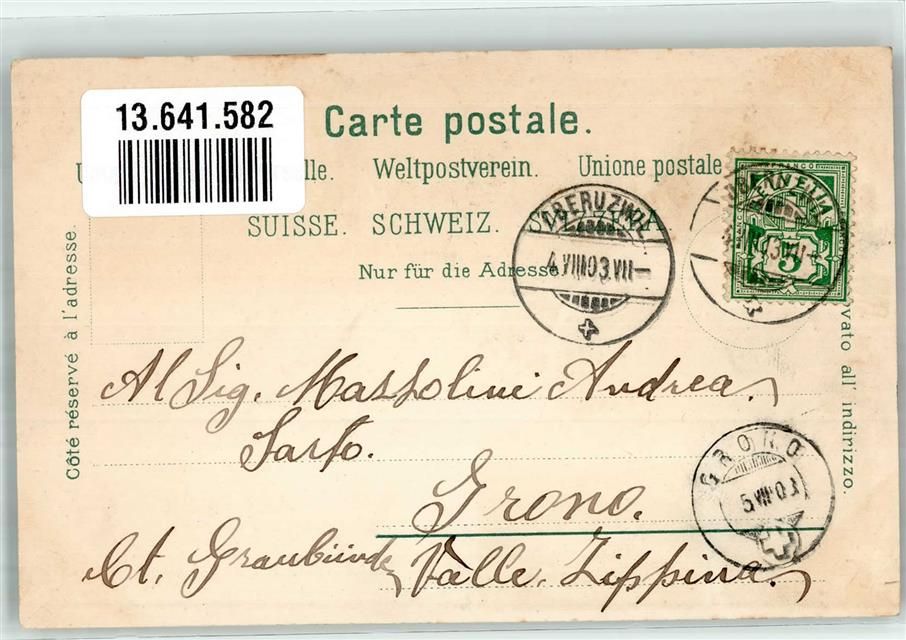 13.641.582
Carte postale.
Weltpostverein. Unione postale
SUISSE. SCHWEIZ.
Nur für die Adresse
Côté réservé à l'adresse.
all' indirizzo.
5
4.VIII.03.VII–
GRONO
5.VIII.03
Al Sig. Massolini Andrea,
Sarto.
Grono.
Ct. Graubünden, Valle. Zippina.